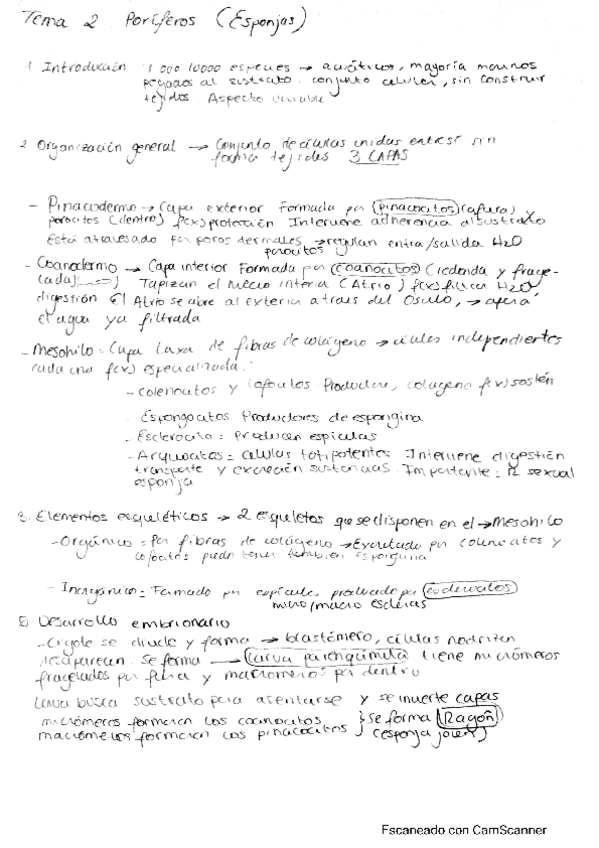 Tema 2 Poríferos (Esponjas)
1 Introducción 10000 especies → acuáticos, mayoría marinos
pegados al sustrato. conjunto celular, sin construir
tejidos. Aspecto variable
2 Organización general → Conjunto de células unidas entre sí sin
formar tejidos 3 CAPAS
- Pinacodermo → Capa exterior Formada por pinacocitos (afuera)
porocitos (dentro) f(x) protección Interviene adherencia al sustrato
Está atravesado por poros dermales → regulan entra/salida H2O
porocitos
- Coanodermo → Capa interior Formada por coanocitos (redonda y flage-
lada) Tapizan el hueco interior (Atrio) f(x) filtrar H2O
digestión El Atrio se abre al exterior a través del Osculo, →
el agua ya filtrada
- Mesohilo = Capa laxa de fibras de colágeno → células independientes
cada una f(x) especializada:
- Colenocitos y lofocitos Productores, colageno f(x) sostén
Espongocitos Productores de espongina
- Esclerocitos: Producen espículas
- Arqueocitos = células totipotentes Interviene digestión
transporte y excreción sustancias. Importante: R sexual
esponja
3. Elementos esqueléticos → 2 esqueletos que se disponen en el → Mesohilo
- Orgánico = Por fibras de colágeno → Excretado por colenocitos y
lofocitos pueden tener también espongina
- Inorgánico = Formado por espículas producidas por
micro/macro escleras
5. Desarrollo embrionario
- Cigoto se divide y forma → blastómero, células nodrizas
desaparecen. Se forma → Larva parenquímula tiene micrómeros
flagelados por fuera y macrómeros por dentro
Larva busca sustrato para asentarse y se invierte capas
micrómeros formaran los coanocitos } se forma Ragon
macrómeros formaran los pinacocitos } (esponja joven)
Escaneado con CamScanner